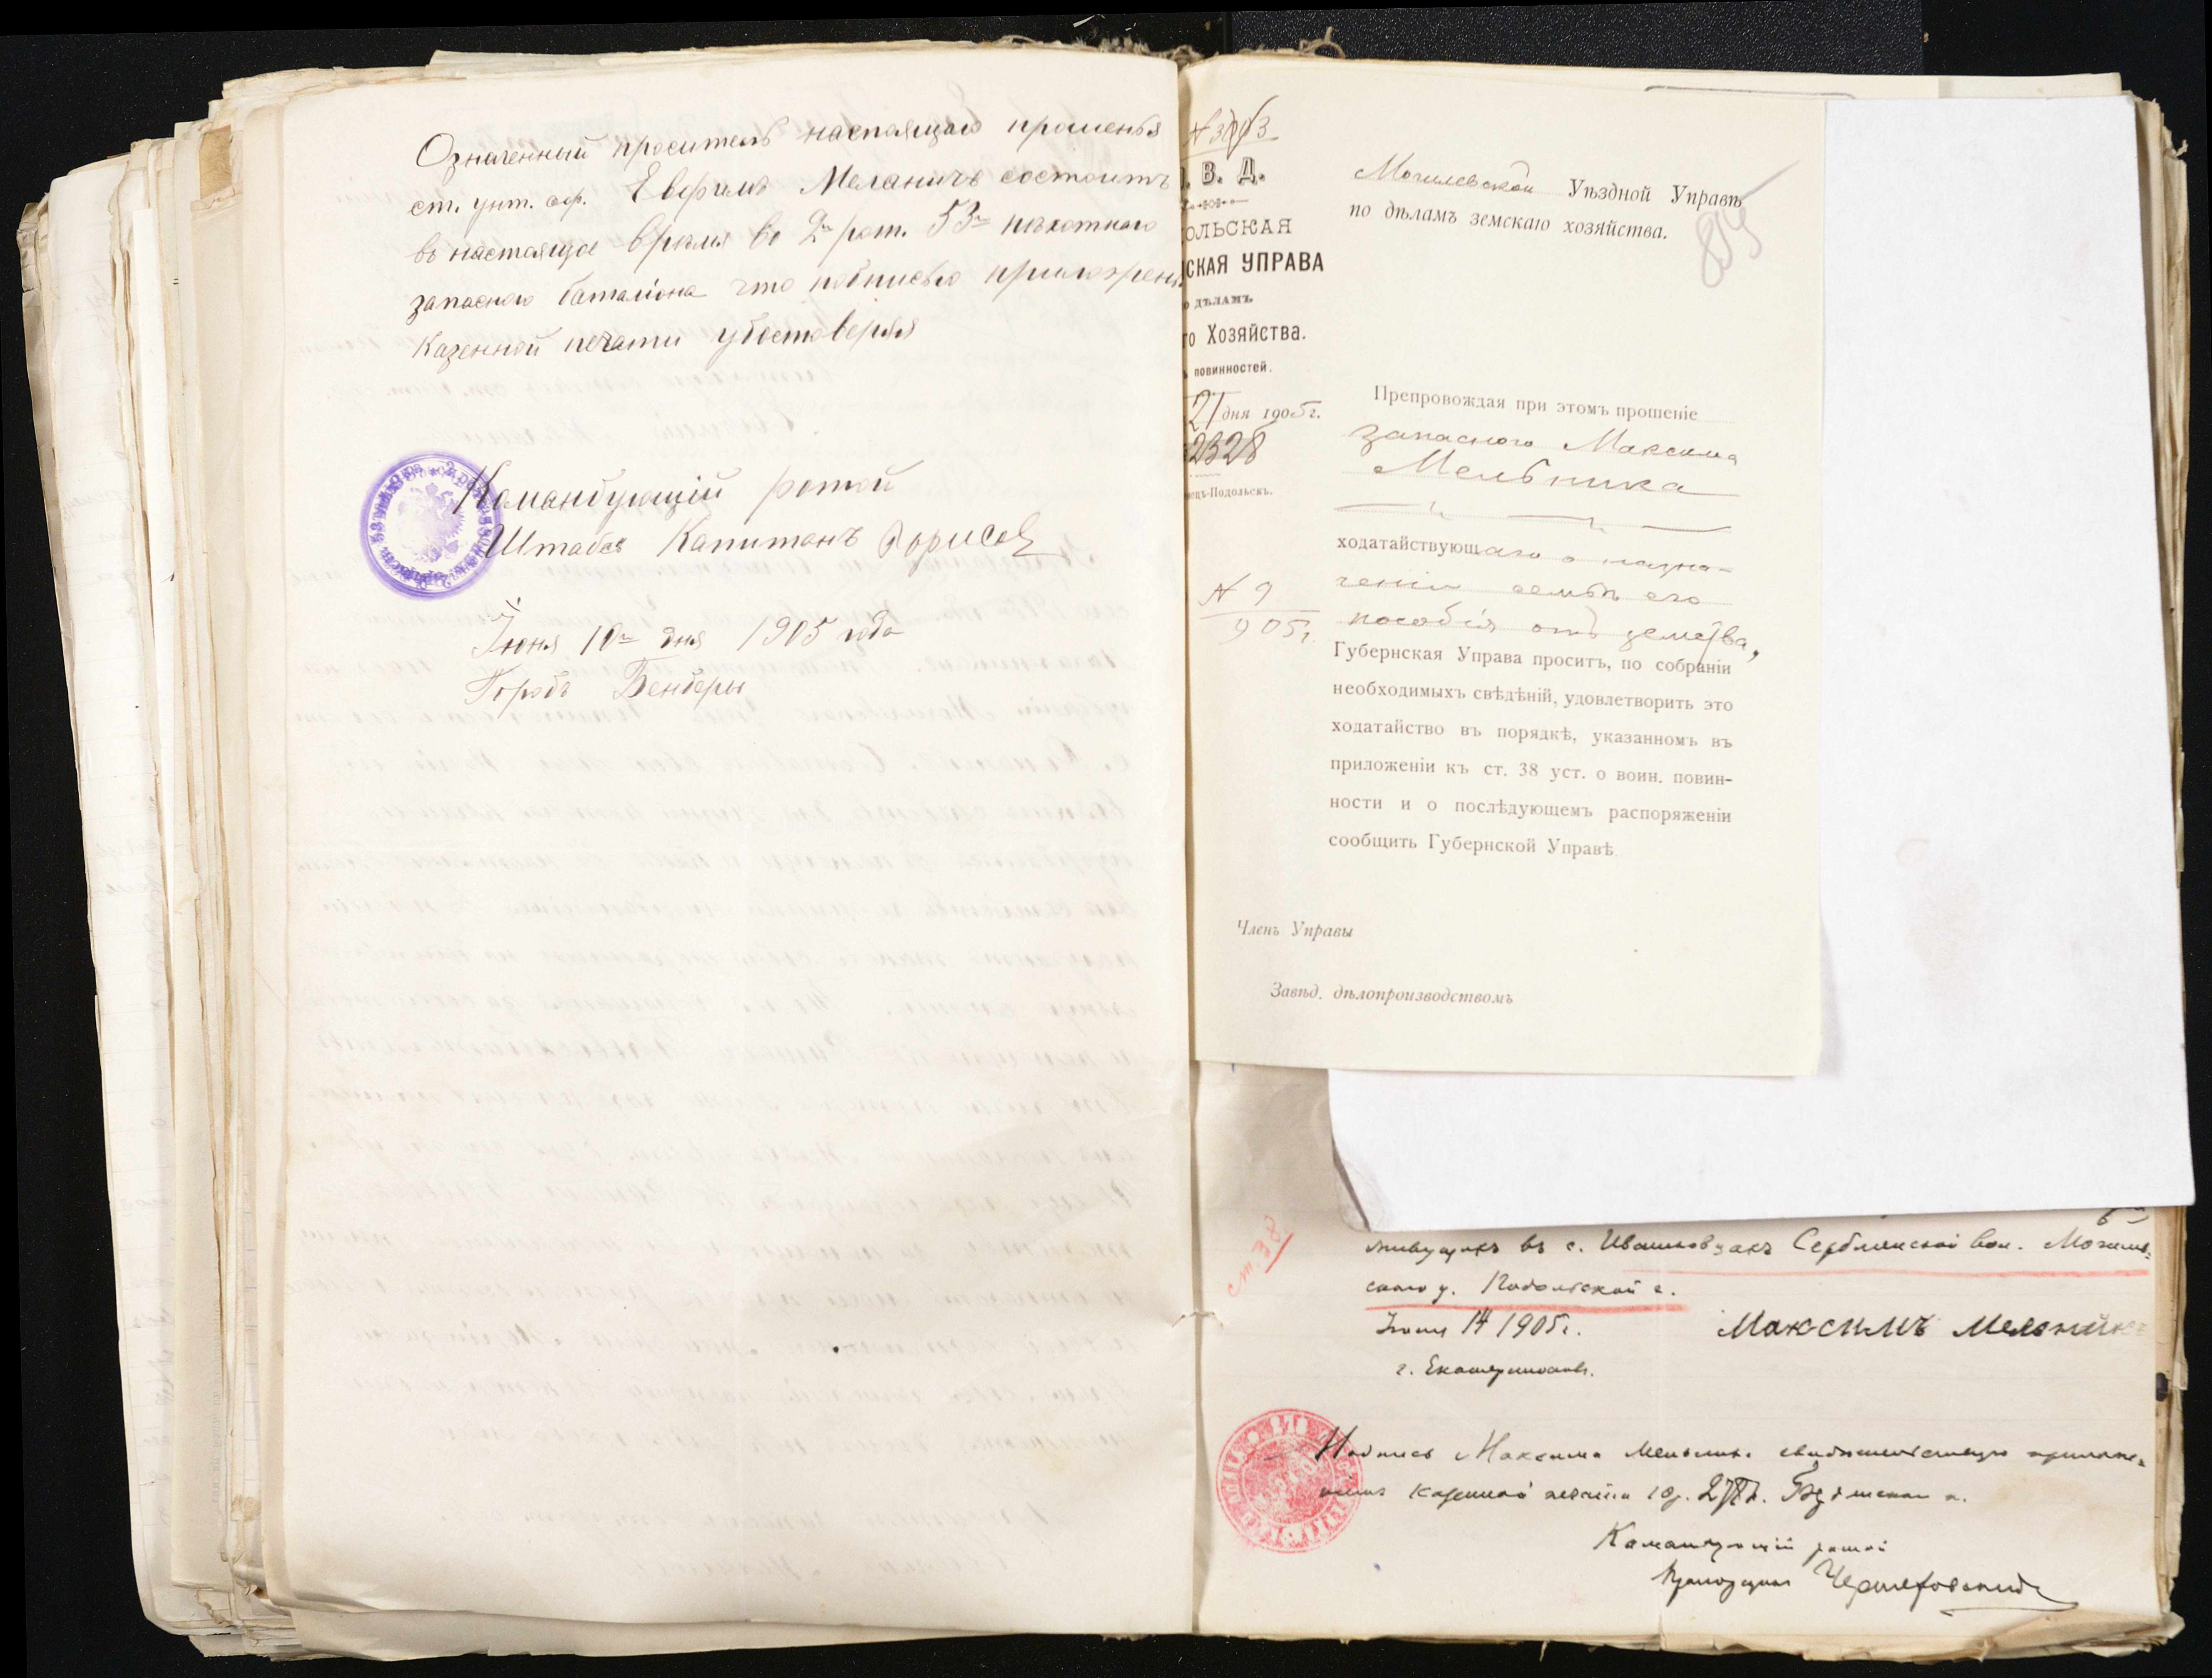 Означенный проситель настоящаго прошенья
ст. унт. оф. Евфимъ Меланичъ состоитъ
въ настоящое время во 2й рот. 53го пехотнаго
запаснаго баталіона что подписью приложрен
Казенной печати удостоверяя
Командующій ротой
Штабсъ Капитанъ Борисов
Іюня 10го дня 1905 года
Городъ Бендеры
В. Д.
ОЛЬСКАЯ
СКАЯ УПРАВА
ДѢЛАМЪ
го Хозяйства.
повинностей.
21 дня 1905 г.
2328
ецъ-Подольскъ.
N 9
905 г.
Могилевской Уѣздной Управѣ
по дѣламъ земскаго хозяйства.
Препровождая при этомъ прошеніе
запасного Максима
Мельника
ходатайствующаго о назна-
ченіи семьѣ его
пособія отъ земства,
Губернская Управа проситъ, по собраніи
необходимыхъ свѣдѣній, удовлетворить это
ходатайство въ порядкѣ, указанномъ въ
приложеніи къ ст. 38 уст. о воин. повин-
ности и о послѣдующемъ распоряженіи
сообщить Губернской Управѣ
Членъ Управы
Завѣд. дѣлопроизводствомъ
ст. 38
живущихъ въ с. Ивашковцахъ Серблянской вол. Могилев-
скаго у. Подольской г.
Іюня 14 1905 г.
Максимъ Мельник
г. Екатеринославъ.
Подпись Максима Мельника свидѣтельствую приложе-
ніемъ казенной печати
Командующій ротой